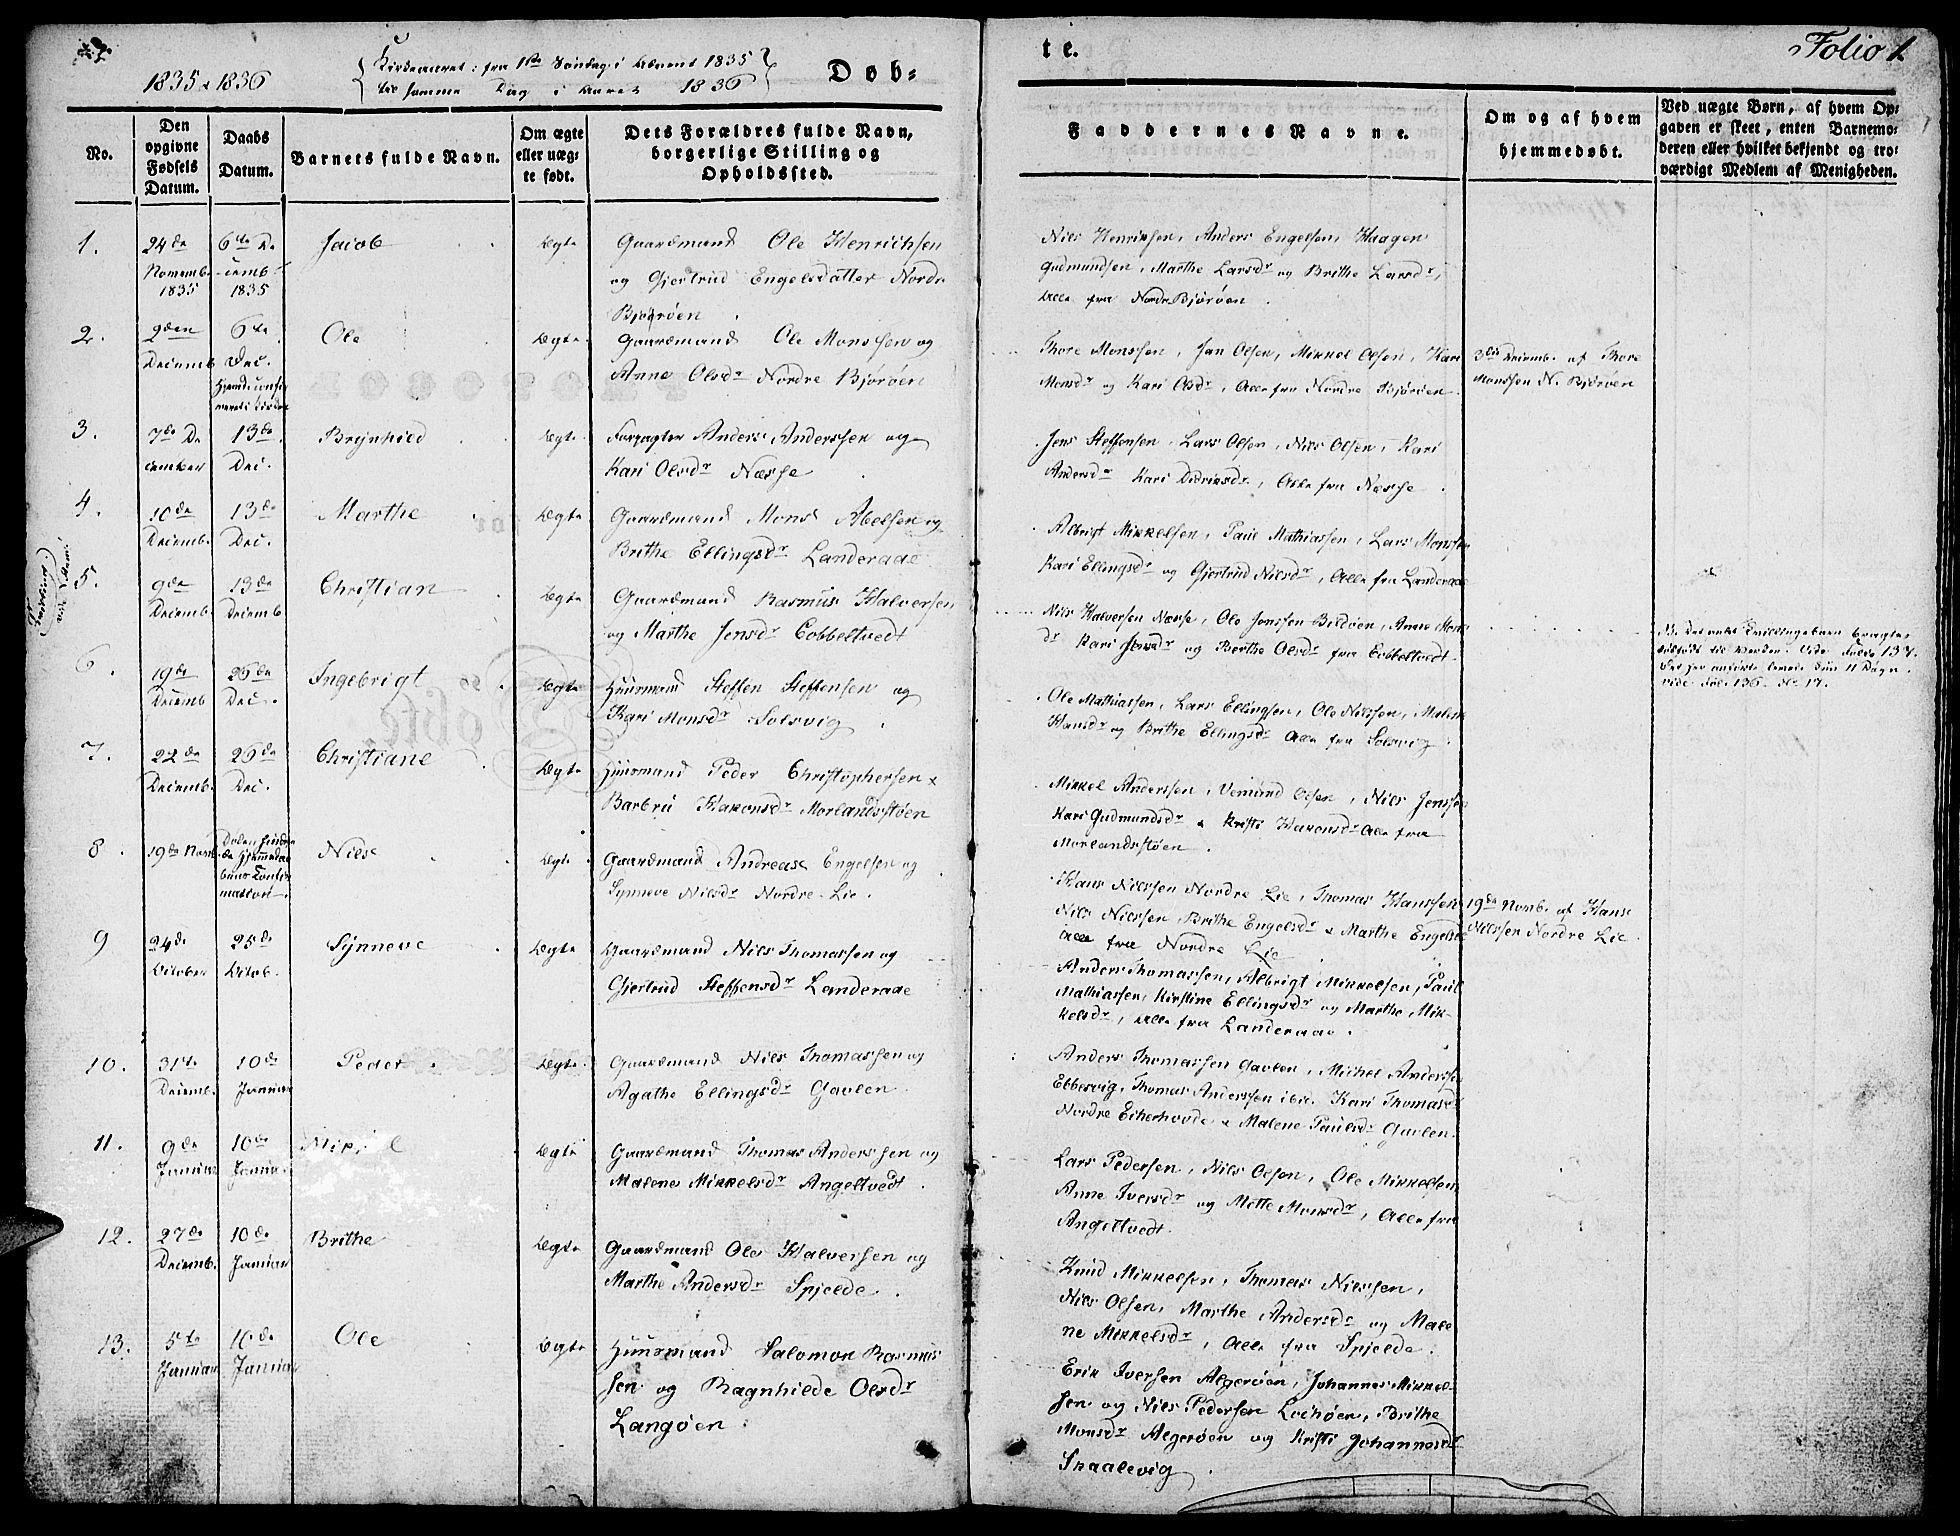 1835 & 1836
Kirkeaaret: fra 1ste Søndag i Advent 1835
til samme Dag i Aaret 1836
Døb=
te.
Folio 1.
No.
Den opgivne Fødsels Datum.
Daabs Datum.
Barnets fulde Navn.
Om ægte eller uæg=te født.
Dets Forældres fulde Navn, borgerlige Stilling og Opholdssted.
Faddernes Navne.
Om og af hvem hjemmedøbt.
Ved uægte Børn, af hvem Op=
gaven er skeet, enten Barnemo=
deren eller hvilket bekjendt og tro=
værdigt Medlem af Menigheden.
1. 24de Novemb. 1835 6te Decemb. 1835 Jacob Ægte
Gaardmand Ole Henrichsen
og Gjertrud Engelsdatter Nordre
Bjørøen
Nils Henriksen, Anders Engelsen, Haagen
Gudmundsen, Marthe Larsdr og Brithe Larsdr,
Alle fra Nordre Bjørøen.
2. 2den Decemb 6te Dec. Ole Ægte
Gaardmand Ole Monssen og
Anne Olsdr Nordre Bjørøen
Thore Monssen, Jan Olsen, Mikkel Olsen, Kari
Monsdr og Kari Olsdr, Alle fra Nordre Bjørøen.
3die Decemb. af Thore
Monssen N. Bjørøen
3. 7de December 13de Dec. Brynhild Ægte
Forpagter Anders Anderssen og
Kari Olsdr Næsse
Jens Steffensen, Lars Olsen, Nils Olsen, Kari
Andersdr Kari Didriksdr, Alle fra Næsse.
4. 10de Decemb. 13de Dec. Marthe Ægte
Gaardmand Mons Abelsen og
Brithe Ellingsdr Landeraae
Albrigt Mikkelsen, Paul Mathiassen, Lars Monssen
Kari Ellingsdr og Gjertrud Nilsdr, Alle fra Landeraae
5. 9de Decemb. 13de Decemb Christian Ægte
Gaardmand Rasmus Halversen
og Marthe Jensdr Cobbeltvedt
Nils Halversen Næsse, Ole Jonssen Bildøen, Anne Mons
dr Kari og Berthe Olsdr fra Cobbeltvedt
6. 19de Decemb 26de Dec. Ingebrigt Ægte
Huusmand Steffen Steffensen og
Kari Monsdr Solsvig.
Ole Mathiassen, Lars Ellingsen, Ole Nilssen, Malene
Hansdr og Brithe Ellingsdr Alle fra Solsvig
7. 22de Decemb. 26de Dec. Christiane Ægte
Huusmand Peder Christophersen &
Barbru Hakonsdr Morlandsstøen
Mikkel Anderssen, Vemund Olsen, Nils Jenssen
Kari Gudmundsdr & Kristi Hakonsdr Alle fra
Morlandsstøen.
8. 19de Novb. Nils Ægte
Gaardmand Andreas Engelsen og
Synneve Nilsdr Nordre Lie.
Hans Nilssen Nordre Lie, Thomas Hanssen
Nils Nilssen, Brithe Engelsdr & Marthe Engelsdr
Alle fra Nordre Lie
19de Novb. af Hans
Nilssen Nordre Lie.
9 24de October 25de Octob. Synneve Ægte
Gaardmand Nils Thomassen og
Gjertrud Steffensdr Landeraae
Anders Thomassen, Albrigt Mikkelsen, Paul
Mathiassen, Kirstine Ellingsdr og Marthe Mik-
kelsdr, Alle fra Landeraae.
10. 31te Decemb. 10de Januar Peder Ægte
Gaardmand Nils Thomassen og
Agathe Ellingsdr Gavlen
Anders Thomassen Gavlen, Michel Anderssen
Ebbesvig, Thomas Anderssen ibid. Kari Thomasdr
Nordre Ekerhovde & Malene Paulsdr Gavlen.
11. 9de Januar 10de Januar Ægte
Gaardmand Thomas Anderssen og
Malene Mikkelsdr Angeltvedt.
Lars Pedersen, Nils Olsen, Ole Mikkelsen
Anne Iversdr og Mette Monsdr, Alle fra
Angeltvedt.
12. 27de Decemb. 10de Januar Brithe Ægte
Gaardmand Ole Halversen og
Marthe Andersdr Spjelde.
Knud Mikkelsen, Thomas Nilssen,
Nils Olsen, Marthe Andersdr og Male
ne Mikkelsdr, Alle fra Spjelde.
13. 5te Januar 10de Januar Ole Ægte
Huusmand Salomon Rasmus
sen og Ragnhilde Olsdr
Langøen
Erik Iversen Algerøen, Johannes Mikkel-
sen og Nils Pedersen Lokøen, Brithe
Monsdr Algerøen og Kristi Johannesdr
Skaalevig.